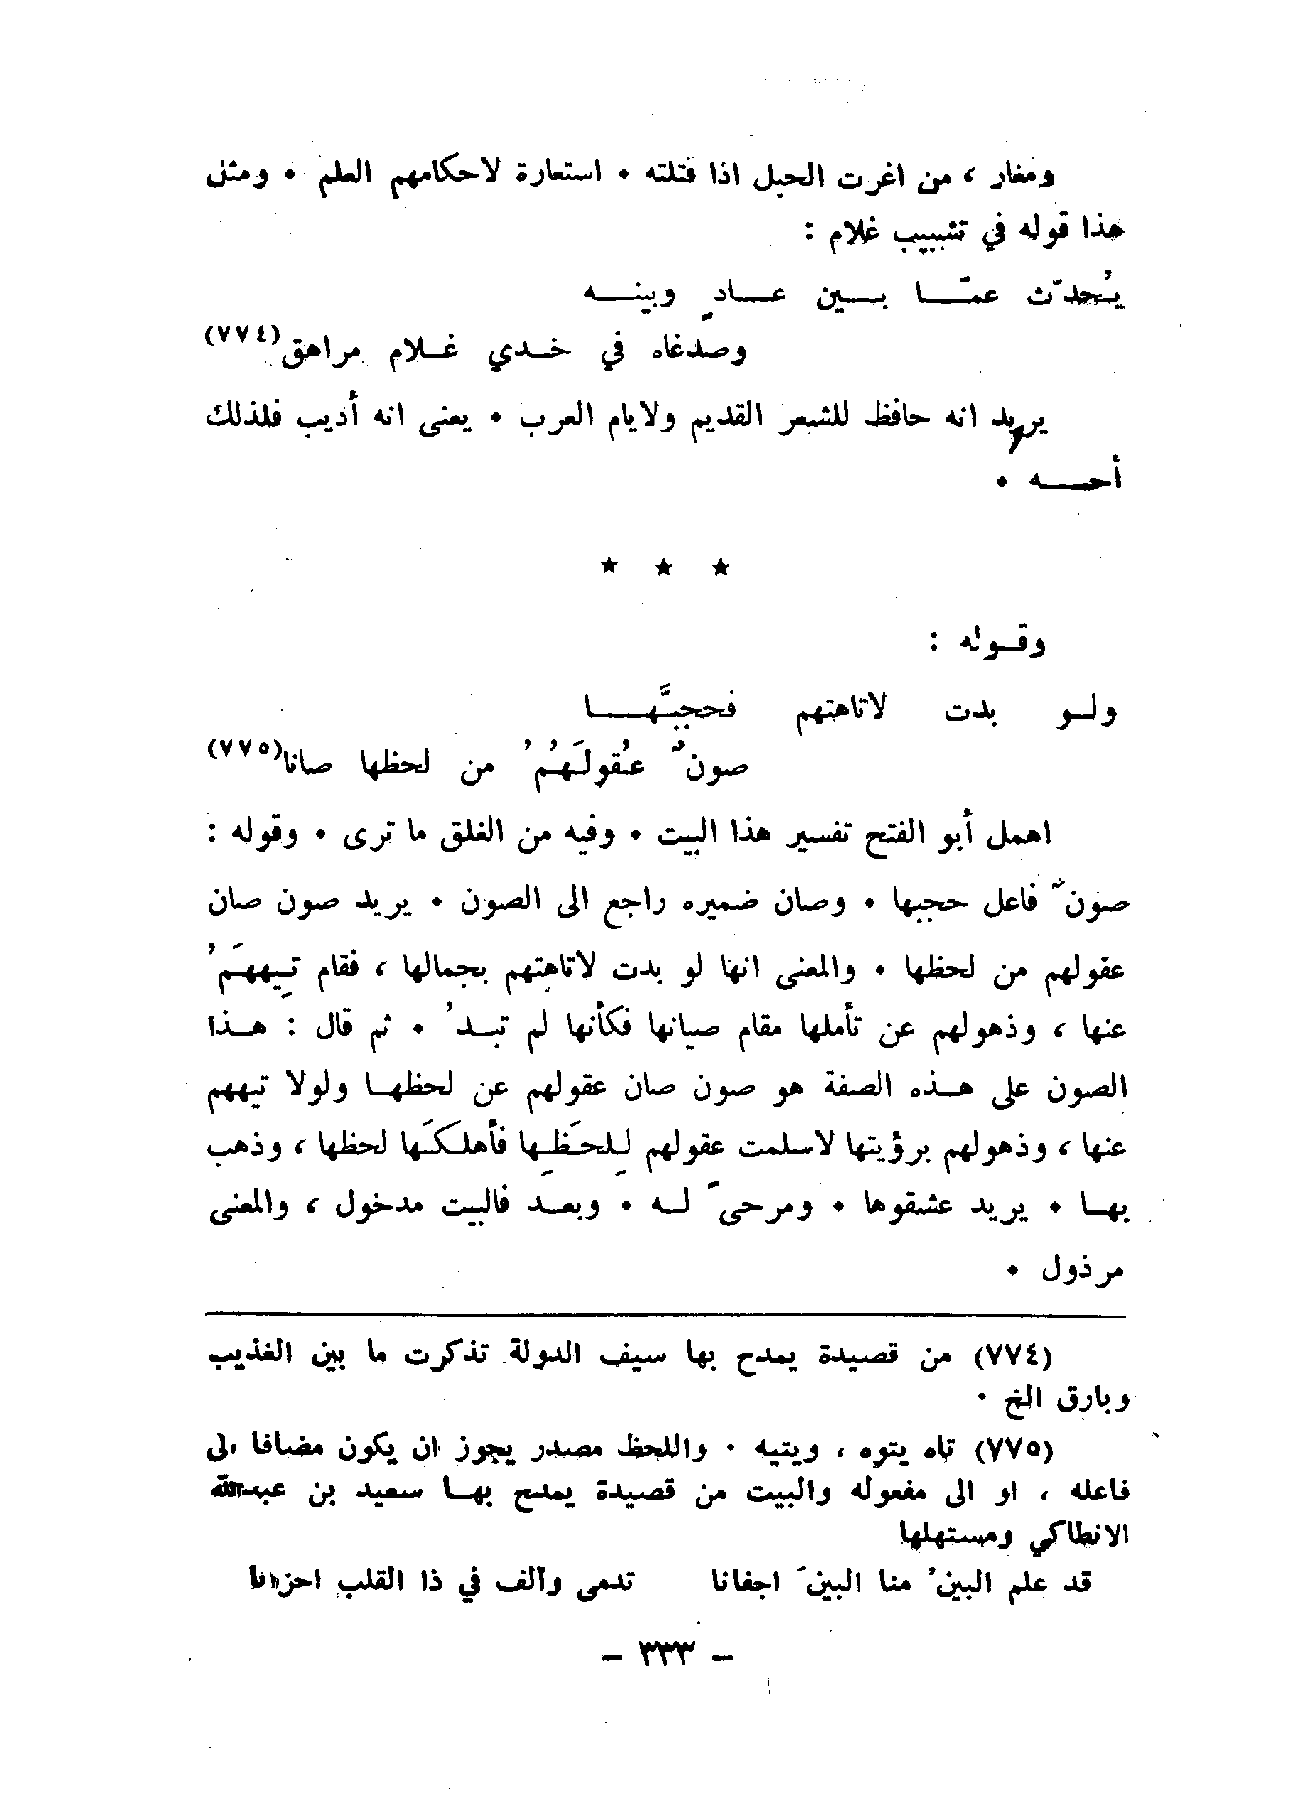 ومغار ، من اغرت الحبل اذا فتلته • استعارة لاحكامهم العلم • ومثل
هذا قوله في تشبيب غلام :
يُحدّث عمّا بين عادٍ وبينه
وصدغاه في خدي غلام مراهق(٧٧٤)
يريد انه حافظ للشعر القديم ولايام العرب • يعنى انه أديب فلذلك
أحبه •
* * *
وقوله :
ولو بدت لاتاهتهم فحجبَّها
صونٌ عُقولَهُمُ من لحظها صانا(٧٧٥)
اهمل أبو الفتح تفسير هذا البيت • وفيه من الغلق ما ترى • وقوله :
صونٌ فاعل حجبها • وصان ضميره راجع الى الصون • يريد صون صان
عقولهم من لحظها • والمعنى انها لو بدت لاتاهتهم بجمالها ، فقام تِيههَمُ
عنها ، وذهولهم عن تأملها مقام صيانها فكأنها لم تبدُ • ثم قال : هذا
الصون على هذه الصفة هو صون صان عقولهم عن لحظها ولولا تيههم
عنها ، وذهولهم برؤيتها لاسلمت عقولهم لِلحَظِها فأهلكَها لحظها ، وذهب
بها • يريد عشقوها • ومرحىً له • وبعد فالبيت مدخول ، والمعنى
مرذول •
(٧٧٤) من قصيدة يمدح بها سيف الدولة تذكرت ما بين العذيب
وبارق الخ •
(٧٧٥) تاه يتوه ، ويتيه • واللحظ مصدر يجوز ان يكون مضافا الى
فاعله ، او الى مفعوله والبيت من قصيدة يمدح بها سعيد بن عبدالله
الانطاكي ومستهلها
قد علم البينُ منا البينَ اجفانا تدمى وآلف في ذا القلب احزانا
– ٣٣٣ –